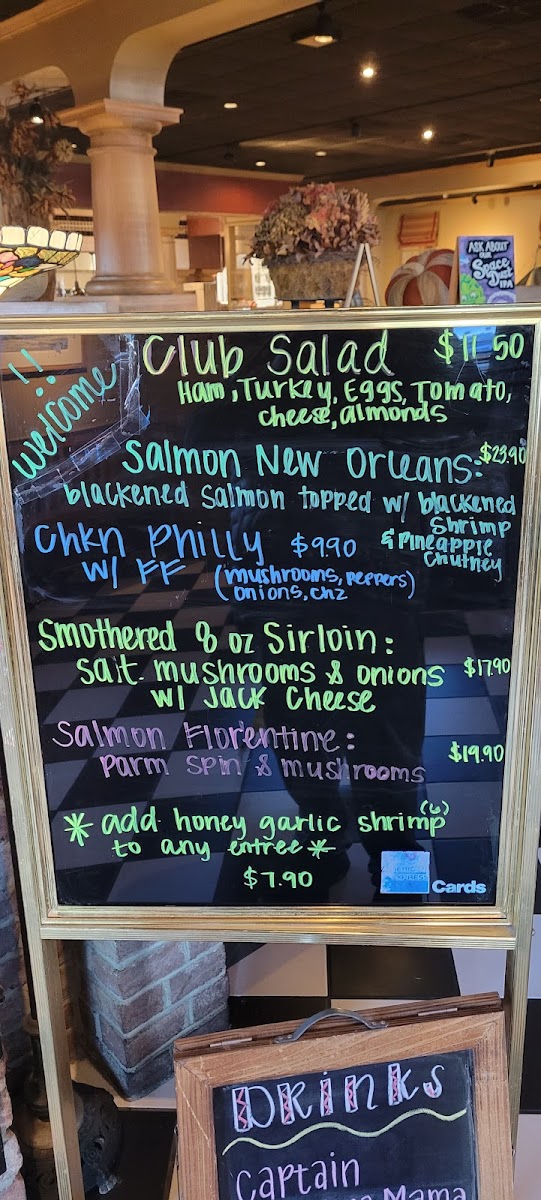 ASK ABOUT
OUR
Space
Dust
IPA
welcome!!
Club Salad $11.50
Ham, Turkey, Eggs, Tomato,
cheese, almonds
Salmon New Orleans: $23.90
blackened salmon topped w/ blackened
shrimp
& Pineapple
Chutney
Chkn Philly $9.90
w/ FF (mushrooms, peppers)
onions, chz
Smothered 8 oz Sirloin:
saít. mushrooms & onions $17.90
w/ Jack Cheese
Salmon Florentine:
parm spin & mushrooms $19.90
* add honey garlic shrimp (6)
to any entree *
$7.90
Cards
DRINKS
Captain
Mama